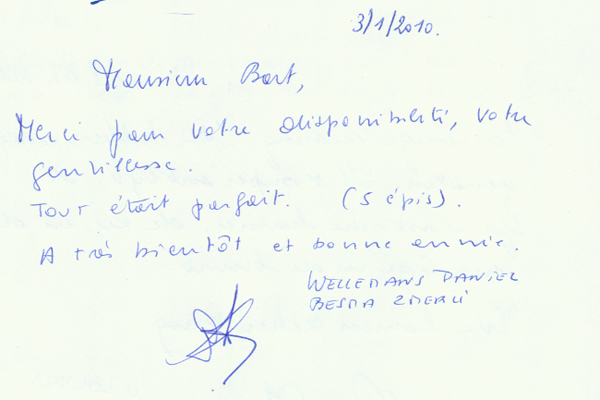 3/1/2010.
Monsieur Bart,
Merci pour votre disponibilité, votre
gentillesse.
Tout était parfait. (5 épis).
A très bientôt et bonne année.
WELLEMANS DANIEL
BESMA ZMERLI